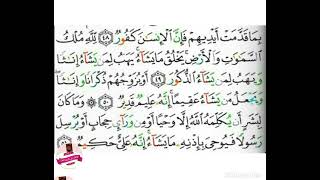 بِمَا قَدَّمَتْ أَيْدِيهِمْ فَإِنَّ الْإِنسَٰنَ كَفُورٌ ٤٨ لِّلَّهِ مُلْكُ
السَّمَٰوَٰتِ وَالْأَرْضِ يَخْلُقُ مَا يَشَآءُ يَهَبُ لِمَن يَشَآءُ إِنَٰثًا
وَيَهَبُ لِمَن يَشَآءُ الذُّكُورَ ٤٩ أَوْ يُزَوِّجُهُمْ ذُكْرَانًا وَإِنَٰثًا
وَيَجْعَلُ مَن يَشَآءُ عَقِيمًا إِنَّهُ عَلِيمٌ قَدِيرٌ ٥٠ وَمَا كَانَ
لِبَشَرٍ أَن يُكَلِّمَهُ اللَّهُ إِلَّا وَحْيًا أَوْ مِن وَرَآئِ حِجَابٍ أَوْ يُرْسِلَ
رَسُولًا فَيُوحِيَ بِإِذْنِهِ مَا يَشَآءُ إِنَّهُ عَلِيٌّ حَكِيمٌ ٥١